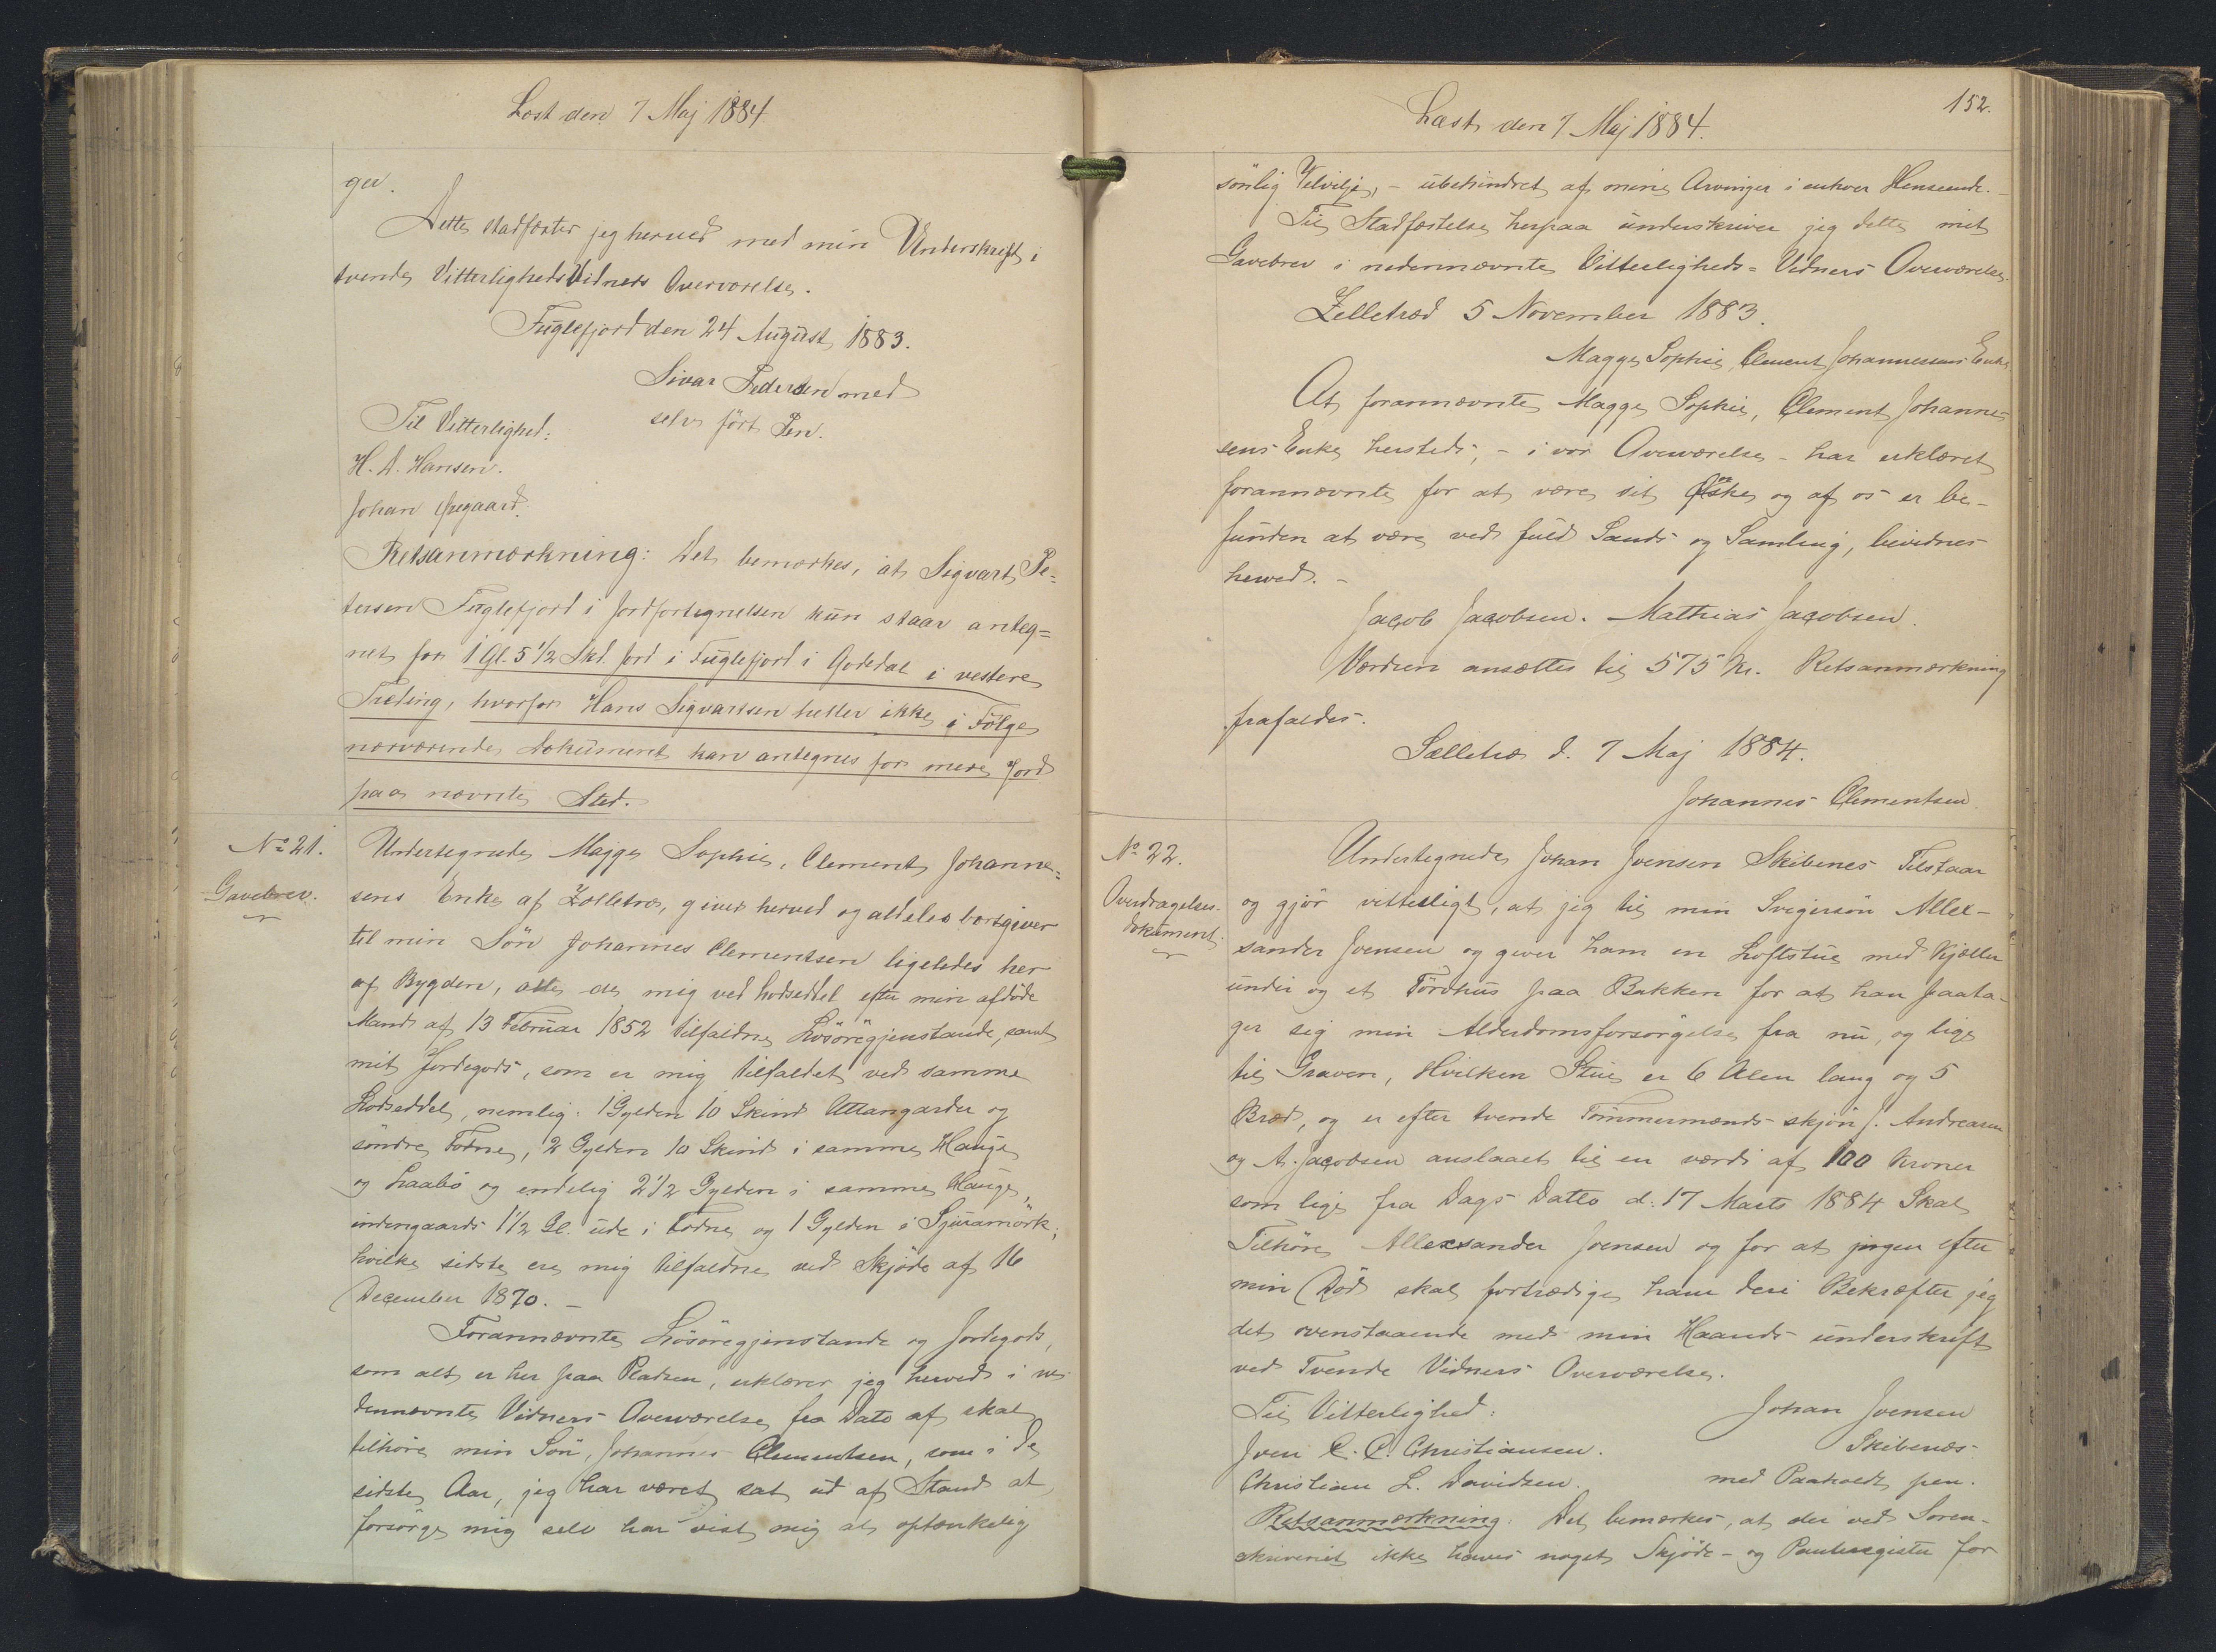 Læst den 7 Maj 1884
ger.
Dette stadfæster jeg herved med min Underskrift i
tvende VitterlighedsVidners Overværelse.
Fuglefjord den 24 August 1883.
Sivar Pedersen med
Til Vitterlighed: selv ført Pen.
H. D. Hansen.
Johan Øregaard.
Retsanmærkning: Det bemærkes, at Sigvart Pe=
tersen Fuglefjord i Jordfortegnelsen kun staar anteg=
net for 1 Gl. 5 1/2 Skd. Jord i Fuglefjord i Godedal i vestere
Treting, hvorfor Hans Sigvartsen heller ikke i Følge
nærværende Dokument kan antegnes for mere Jord
paa nævnte Sted.
No 21.
Gavebrev.
Undertegnede Magge Sophie, Clement Johanne=
sens Enke af Zelletræ, giver herved og aldeles bortgiver
til min Søn Johannes Clementsen ligeledes her
af Bygden, alle de mig ved Lodseddel efter min afdøde
Mand af 13 Februar 1852 tilfaldne Løsøregjenstande, samt
mit Jordegods, som er mig tilfaldet ved samme
Lodseddel, nemlig: 1 Gylden 10 Skind Uttangarder og
søndre Todne, 2 Gylden 10 Skind i samme Hauge
og Laabø og endelig 2 1/2 Gylden i samme Hauge,
indengaards 1 1/2 Gl. ude i Todne og 1 Gylden i Sjuramørk;
hvilke sidste ere mig tilfaldne ved Skjøde af 16
December 1870. –
Forannævnte Løsøregjenstande og Jordegods,
som alt er her paa Pladsen, erklærer jeg herved i ne-
dennævnte Vidners Overværelse fra Dato af skal
tilhøre min Søn, Johannes Clementsen, som i de
sidste Aar, jeg har været sat ud af Stand at
forsørge mig selv har vist mig al optænkelig
152.
Læst den 7 Maj 1884.
sønlig Velvilje, – ubehindret af mine Arvinger i enhver Henseende. –
Til Stadfæstelse herpaa underskriver jeg dette mit
Gavebrev i nedennævnte Vitterligheds-Vidners Overværelse.
Zelletræd 5 November 1883.
Magge Sophie, Clement Johannesens Enke
At forannævnte Magge Sophie, Clement Johanne-
sens Enke hersteds, – i vor Overværelse – har erklæret
forannævnte for at være sit Ønske og af os er be-
funden at være ved fuld Sands og Samling, bevidnes
herved. –
Jacob Jacobsen. Mathias Jacobsen.
Værdien ansættes til 575 Kr. Retsanmærkning
frafaldes.
Sælletræ d. 7 Maj 1884.
Johannes Clementsen.
No 22.
Overdragelses-
dokument.
Undertegnede Johan Joensen Skibenes Tilstaar
og gjør vitterligt, at jeg til min Svigersøn Allex-
sander Joensen og giver ham en Loftstue med Kjælder
under og et Tørvhus paa Bakken for at han paata-
ger sig min Alderdomsforsørgelse fra nu, og lige
til Graven, Hvilken Stue er 6 Alen lang og 5
Bred, og er efter tvende Tømmermænds skjøn J. Andreasen
og A. Jacobsen anslaaet til en værdi af 100 Kroner
som lige fra Dags Datto d. 17 Marts 1884 Skal
Tilhøre Allexsander Joensen og for at ingen efter
min Død skal fortrædige ham deri Bekræfter jeg
det ovenstaaende med min Haands underskrift
ved Tvende Vidners Overværelse.
Til Vitterlighed: Johan Joensen
Joen C. C. Christiansen. Skibenæs
Christian L. Davidsen. med Paaholdt pen.
Retsanmærkning. Det bemærkes, at der ved Soren-
skriveriet ikke haves noget Skjøde- og Panteregister for